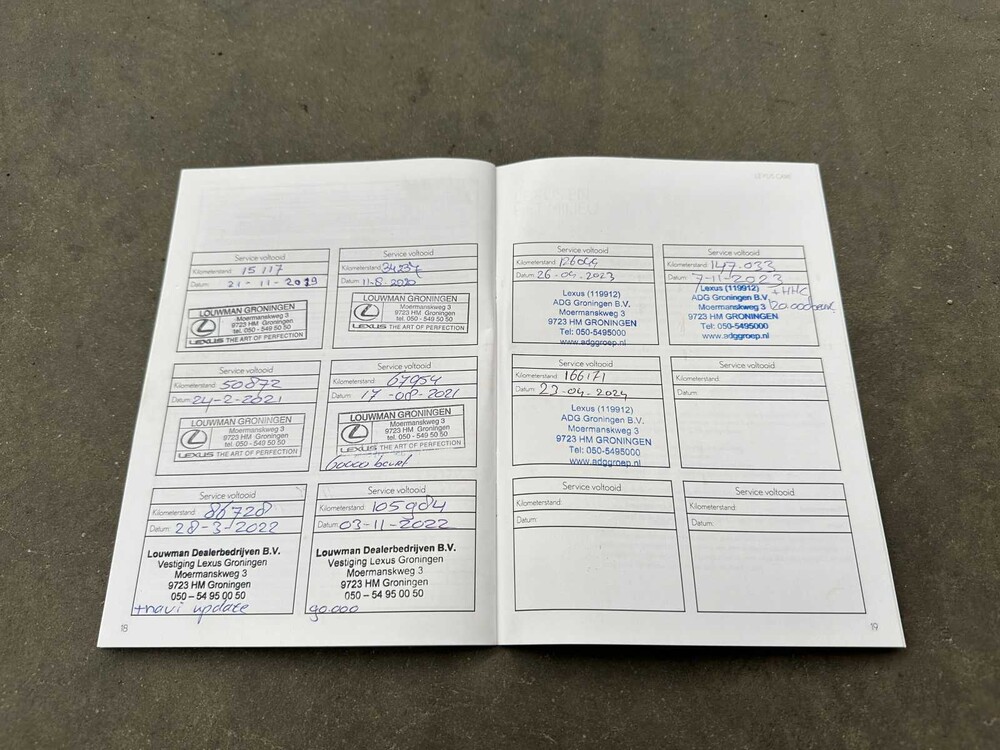 Service voltooid
Kilometerstand: 15 117
Datum: 21-11-2019
LOUWMAN GRONINGEN
Moermanskweg 3
9723 HM Groningen
tel. 050 - 549 50 50
LEXUS THE ART OF PERFECTION
Service voltooid
Kilometerstand: 34237
Datum: 11-8-2020
LOUWMAN GRONINGEN
Moermanskweg 3
9723 HM Groningen
tel. 050 - 549 50 50
LEXUS THE ART OF PERFECTION
Service voltooid
Kilometerstand: 50872
Datum: 24-2-2021
LOUWMAN GRONINGEN
Moermanskweg 3
9723 HM Groningen
tel. 050 - 549 50 50
LEXUS THE ART OF PERFECTION
Service voltooid
Kilometerstand: 67954
Datum: 17-08-2021
LOUWMAN GRONINGEN
Moermanskweg 3
9723 HM Groningen
tel. 050 - 549 50 50
LEXUS THE ART OF PERFECTION
60000 beurt
Service voltooid
Kilometerstand: 86728
Datum: 28-3-2022
Louwman Dealerbedrijven B.V.
Vestiging Lexus Groningen
Moermanskweg 3
9723 HM Groningen
050 – 54 95 00 50
+navi update
Service voltooid
Kilometerstand: 105984
Datum: 03-11-2022
Louwman Dealerbedrijven B.V.
Vestiging Lexus Groningen
Moermanskweg 3
9723 HM Groningen
050 – 54 95 00 50
90.000
18
LEXUS CARE
Service voltooid
Kilometerstand:
Datum: 26-04-2023
Lexus (119912)
ADG Groningen B.V.
Moermanskweg 3
9723 HM GRONINGEN
Tel: 050-5495000
www.adggroep.nl
Service voltooid
Kilometerstand: 147.033
Datum: 7-11-2023
Lexus (119912)
ADG Groningen B.V.
Moermanskweg 3
9723 HM GRONINGEN
Tel: 050-5495000
www.adggroep.nl
Service voltooid
Kilometerstand: 166171
Datum: 23-04-2024
Lexus (119912)
ADG Groningen B.V.
Moermanskweg 3
9723 HM GRONINGEN
Tel: 050-5495000
www.adggroep.nl
Service voltooid
Kilometerstand:
Datum:
Service voltooid
Kilometerstand:
Datum:
Service voltooid
Kilometerstand:
Datum:
19